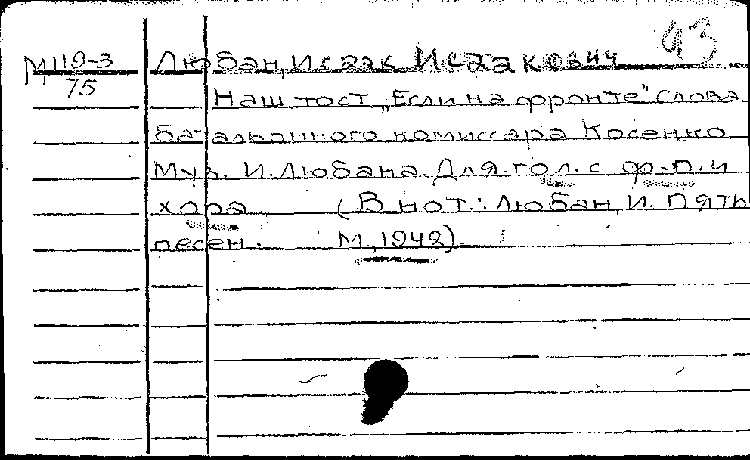 43
М 119-3
75
Любан, Исаак Исаакович
Наш тост „Если на фронте" слова
батальонного комиссара Косенко
Муз. И. Любана. Для гол. с ф-п. и
хора (В нот.: Любан, И. Пять
песен. М, 1942).